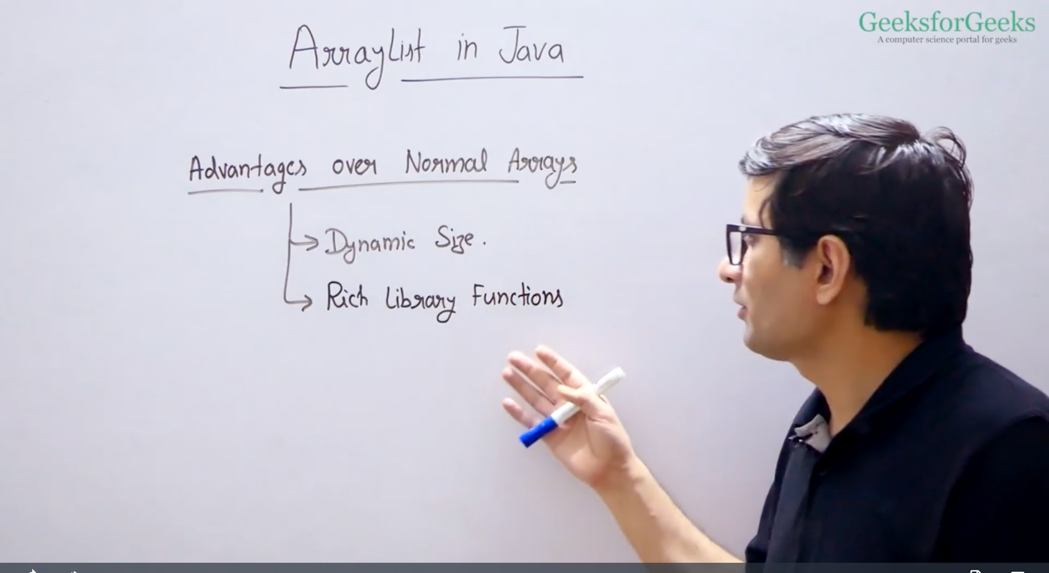 GeeksforGeeks
A computer science portal for geeks
ArrayList in Java
Advantages over Normal Arrays
Dynamic Size.
Rich Library Functions